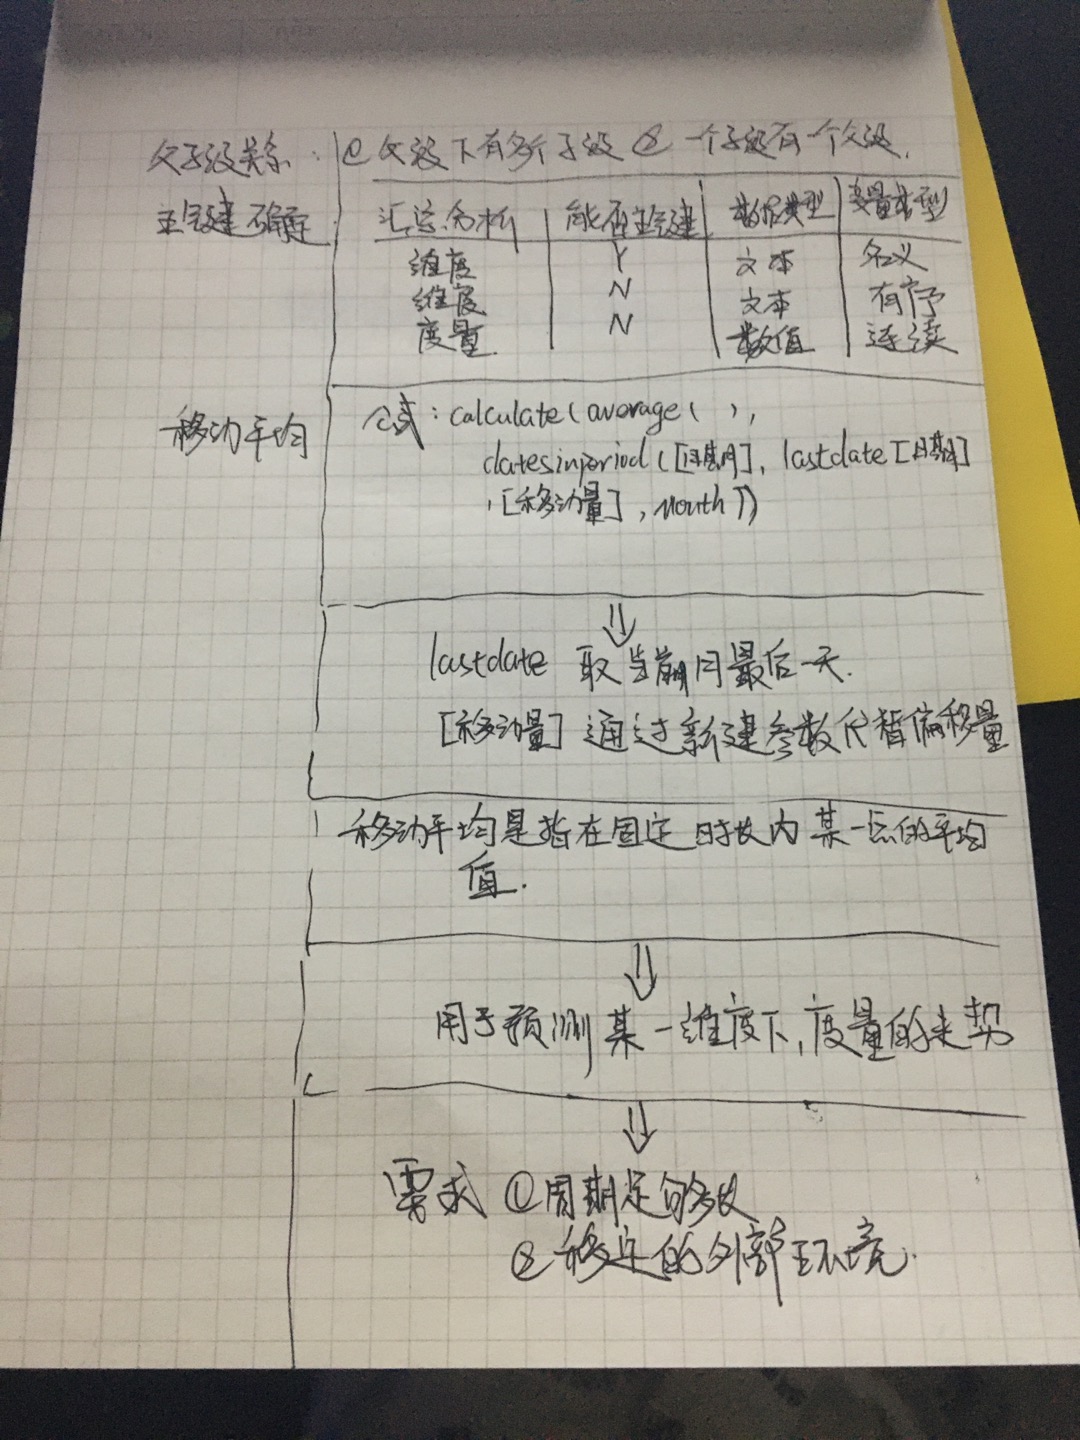 父子级关系: ①父级下有多个子级 ②一个子级有一个父级.
主键建确定
汇总分析 能否主键建 数据类型 变量类型
维度 Y 文本 名义
维度 N 文本 有序
度量 N 数值 连续
移动平均 公式: calculate(average( ),
datesinperiod([日期], lastdate[日期]
,[移动量], month))
⇓
lastdate 取当前月最后一天.
[移动量] 通过新建参数代替偏移量
移动平均是指在固定时段内某一点的平均
值.
⇓
用于预测某一维度下,度量的走势
⇓
需求 ①周期足够多
②稳定的外部环境.